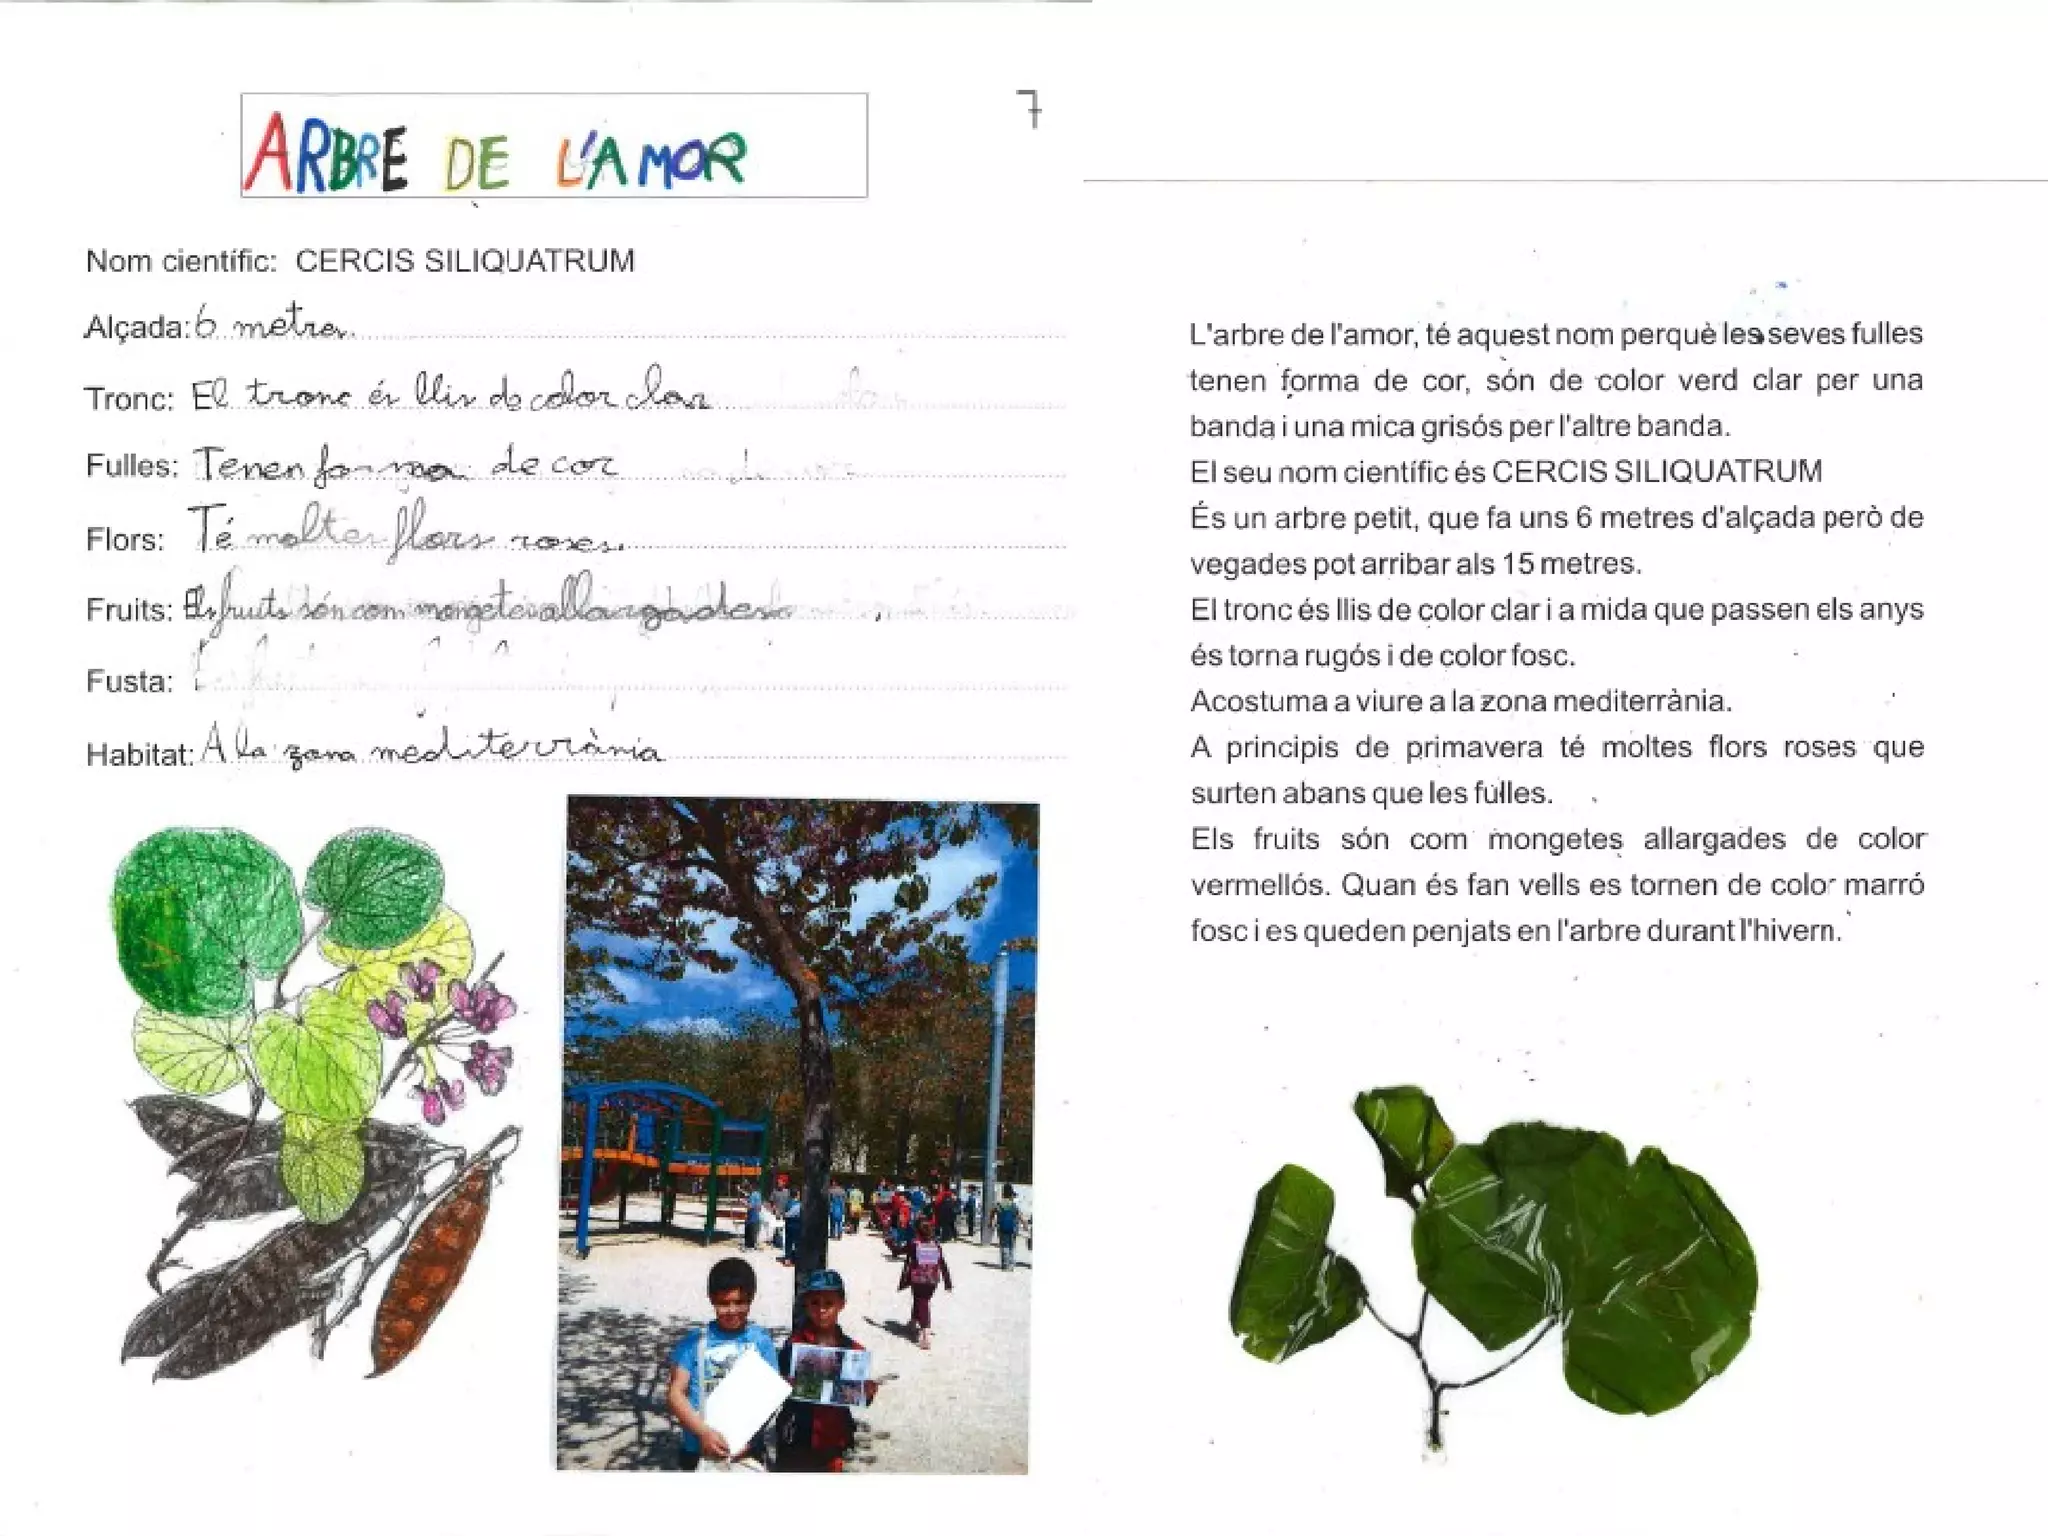 ARBRE DE L'AMOR
7
Nom científic: CERCIS SILIQUATRUM
Alçada: 6 metres.
Tronc: El tronc és llis de color clar
Fulles: Tenen forma de cor
Flors: Té moltes flors roses.
Fruits: Els fruits són com mongetes allargades
Fusta:
Habitat: A la zona mediterrània
L'arbre de l'amor, té aquest nom perquè les seves fulles
tenen forma de cor, són de color verd clar per una
banda i una mica grisós per l'altre banda.
El seu nom científic és CERCIS SILIQUATRUM
És un arbre petit, que fa uns 6 metres d'alçada però de
vegades pot arribar als 15 metres.
El tronc és llis de color clar i a mida que passen els anys
és torna rugós i de color fosc.
Acostuma a viure a la zona mediterrània.
A principis de primavera té moltes flors roses que
surten abans que les fulles.
Els fruits són com mongetes allargades de color
vermellós. Quan és fan vells es tornen de color marró
fosc i es queden penjats en l'arbre durant l'hivern.